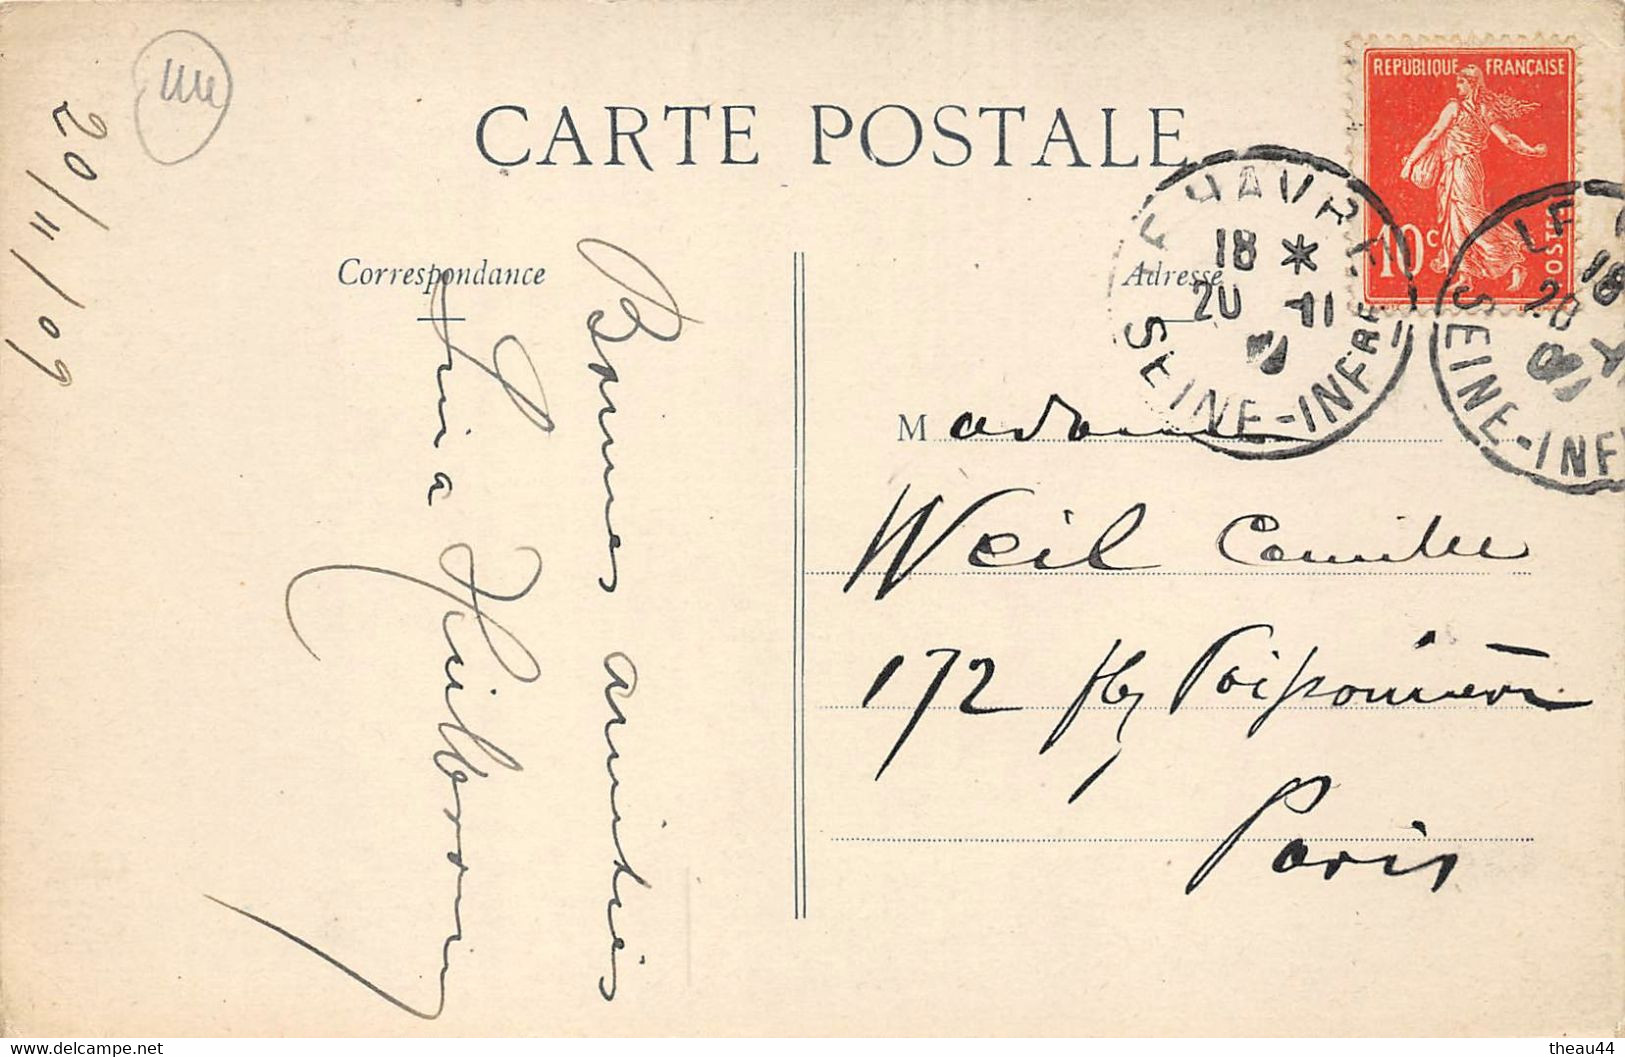 20/11/09
CARTE POSTALE
REPUBLIQUE FRANÇAISE
10c
POSTES
LE HAVRE
18 *
20 -11
09
SEINE-INFRE
LE
18
20
09
SEINE-INF
Correspondance
Adresse
Bonnes amitiés
Heilbronn
Madame
Weil Camille
172 fbg Poissonnière
Paris
www.delcampe.net
theau44